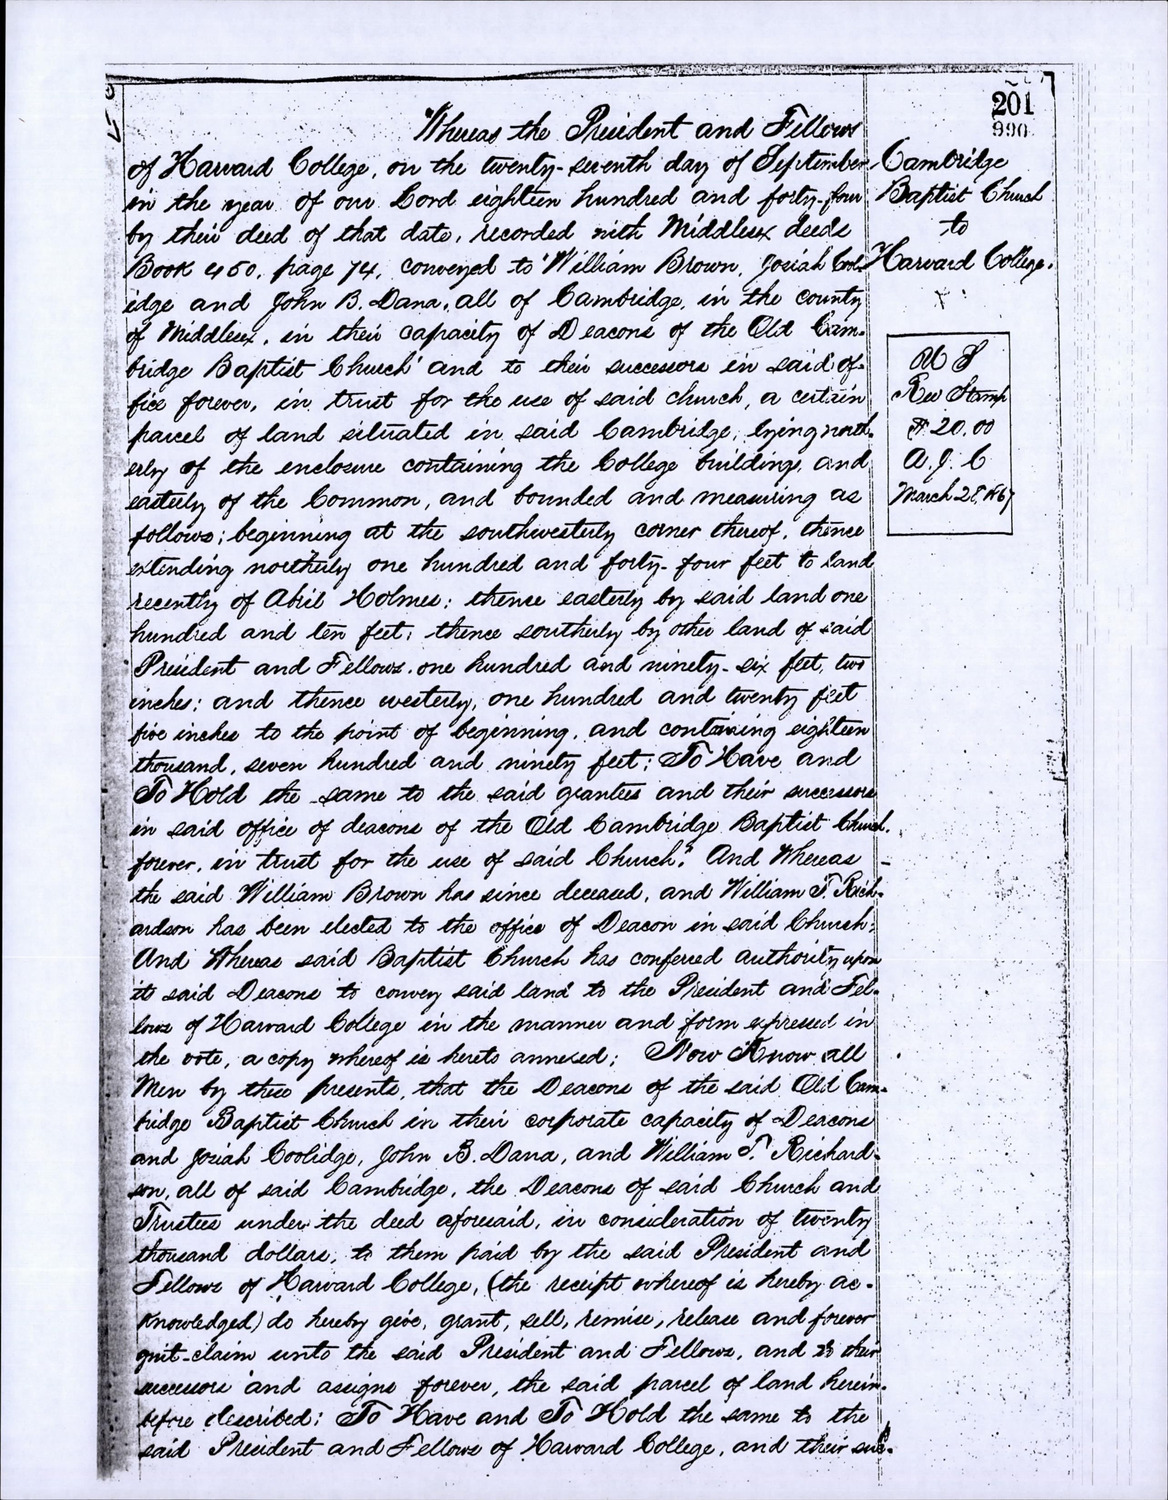 201
990
Whereas the President and Fellows
of Harvard College, on the twenty-seventh day of September
in the year of our Lord eighteen hundred and forty-four
by their deed of that date, recorded with Middlesex deeds
Book 450, page 74, conveyed to "William Brown, Josiah Cool-
idge and John B. Dana, all of Cambridge, in the county
of Middlesex, in their capacity of Deacons of the Old Cam-
bridge Baptist Church and to their successors in said of-
fice forever, in trust for the use of said church, a certain
parcel of land situated in said Cambridge, lying north-
erly of the enclosure containing the College buildings, and
easterly of the Common, and bounded and measuring as
follows; beginning at the southwesterly corner thereof, thence
extending northerly one hundred and forty-four feet to land
recently of Abiel Holmes; thence easterly by said land one
hundred and ten feet; thence southerly by other land of said
President and Fellows, one hundred and ninety-six feet, two
inches; and thence westerly, one hundred and twenty feet
five inches to the point of beginning, and containing eighteen
thousand, seven hundred and ninety feet; To Have and
To Hold the same to the said grantees and their successors
in said office of deacons of the Old Cambridge Baptist Church,
forever, in trust for the use of said Church." And Whereas
the said William Brown has since deceased, and William T. Rich-
ardson has been elected to the office of Deacon in said Church;
And Whereas said Baptist Church has conferred authority upon
its said Deacons to convey said land to the President and Fel-
lows of Harvard College in the manner and form expressed in
the vote, a copy whereof is hereto annexed; Now Know all
Men by these presents, that the Deacons of the said Old Cam-
bridge Baptist Church in their corporate capacity of Deacons
and Josiah Coolidge, John B. Dana, and William T. Richard-
son, all of said Cambridge, the Deacons of said Church and
Trustees under the deed aforesaid, in consideration of twenty
thousand dollars, to them paid by the said President and
Fellows of Harvard College, (the receipt whereof is hereby ac-
knowledged) do hereby give, grant, sell, remise, release and forever
quit-claim unto the said President and Fellows, and to their
successors and assigns forever, the said parcel of land herein-
before described; To Have and To Hold the same to the
said President and Fellows of Harvard College, and their suc-
Cambridge
Baptist Church
to
Harvard College.
U S
Rev Stamp
$20.00
A. J. C
March 28, 1867